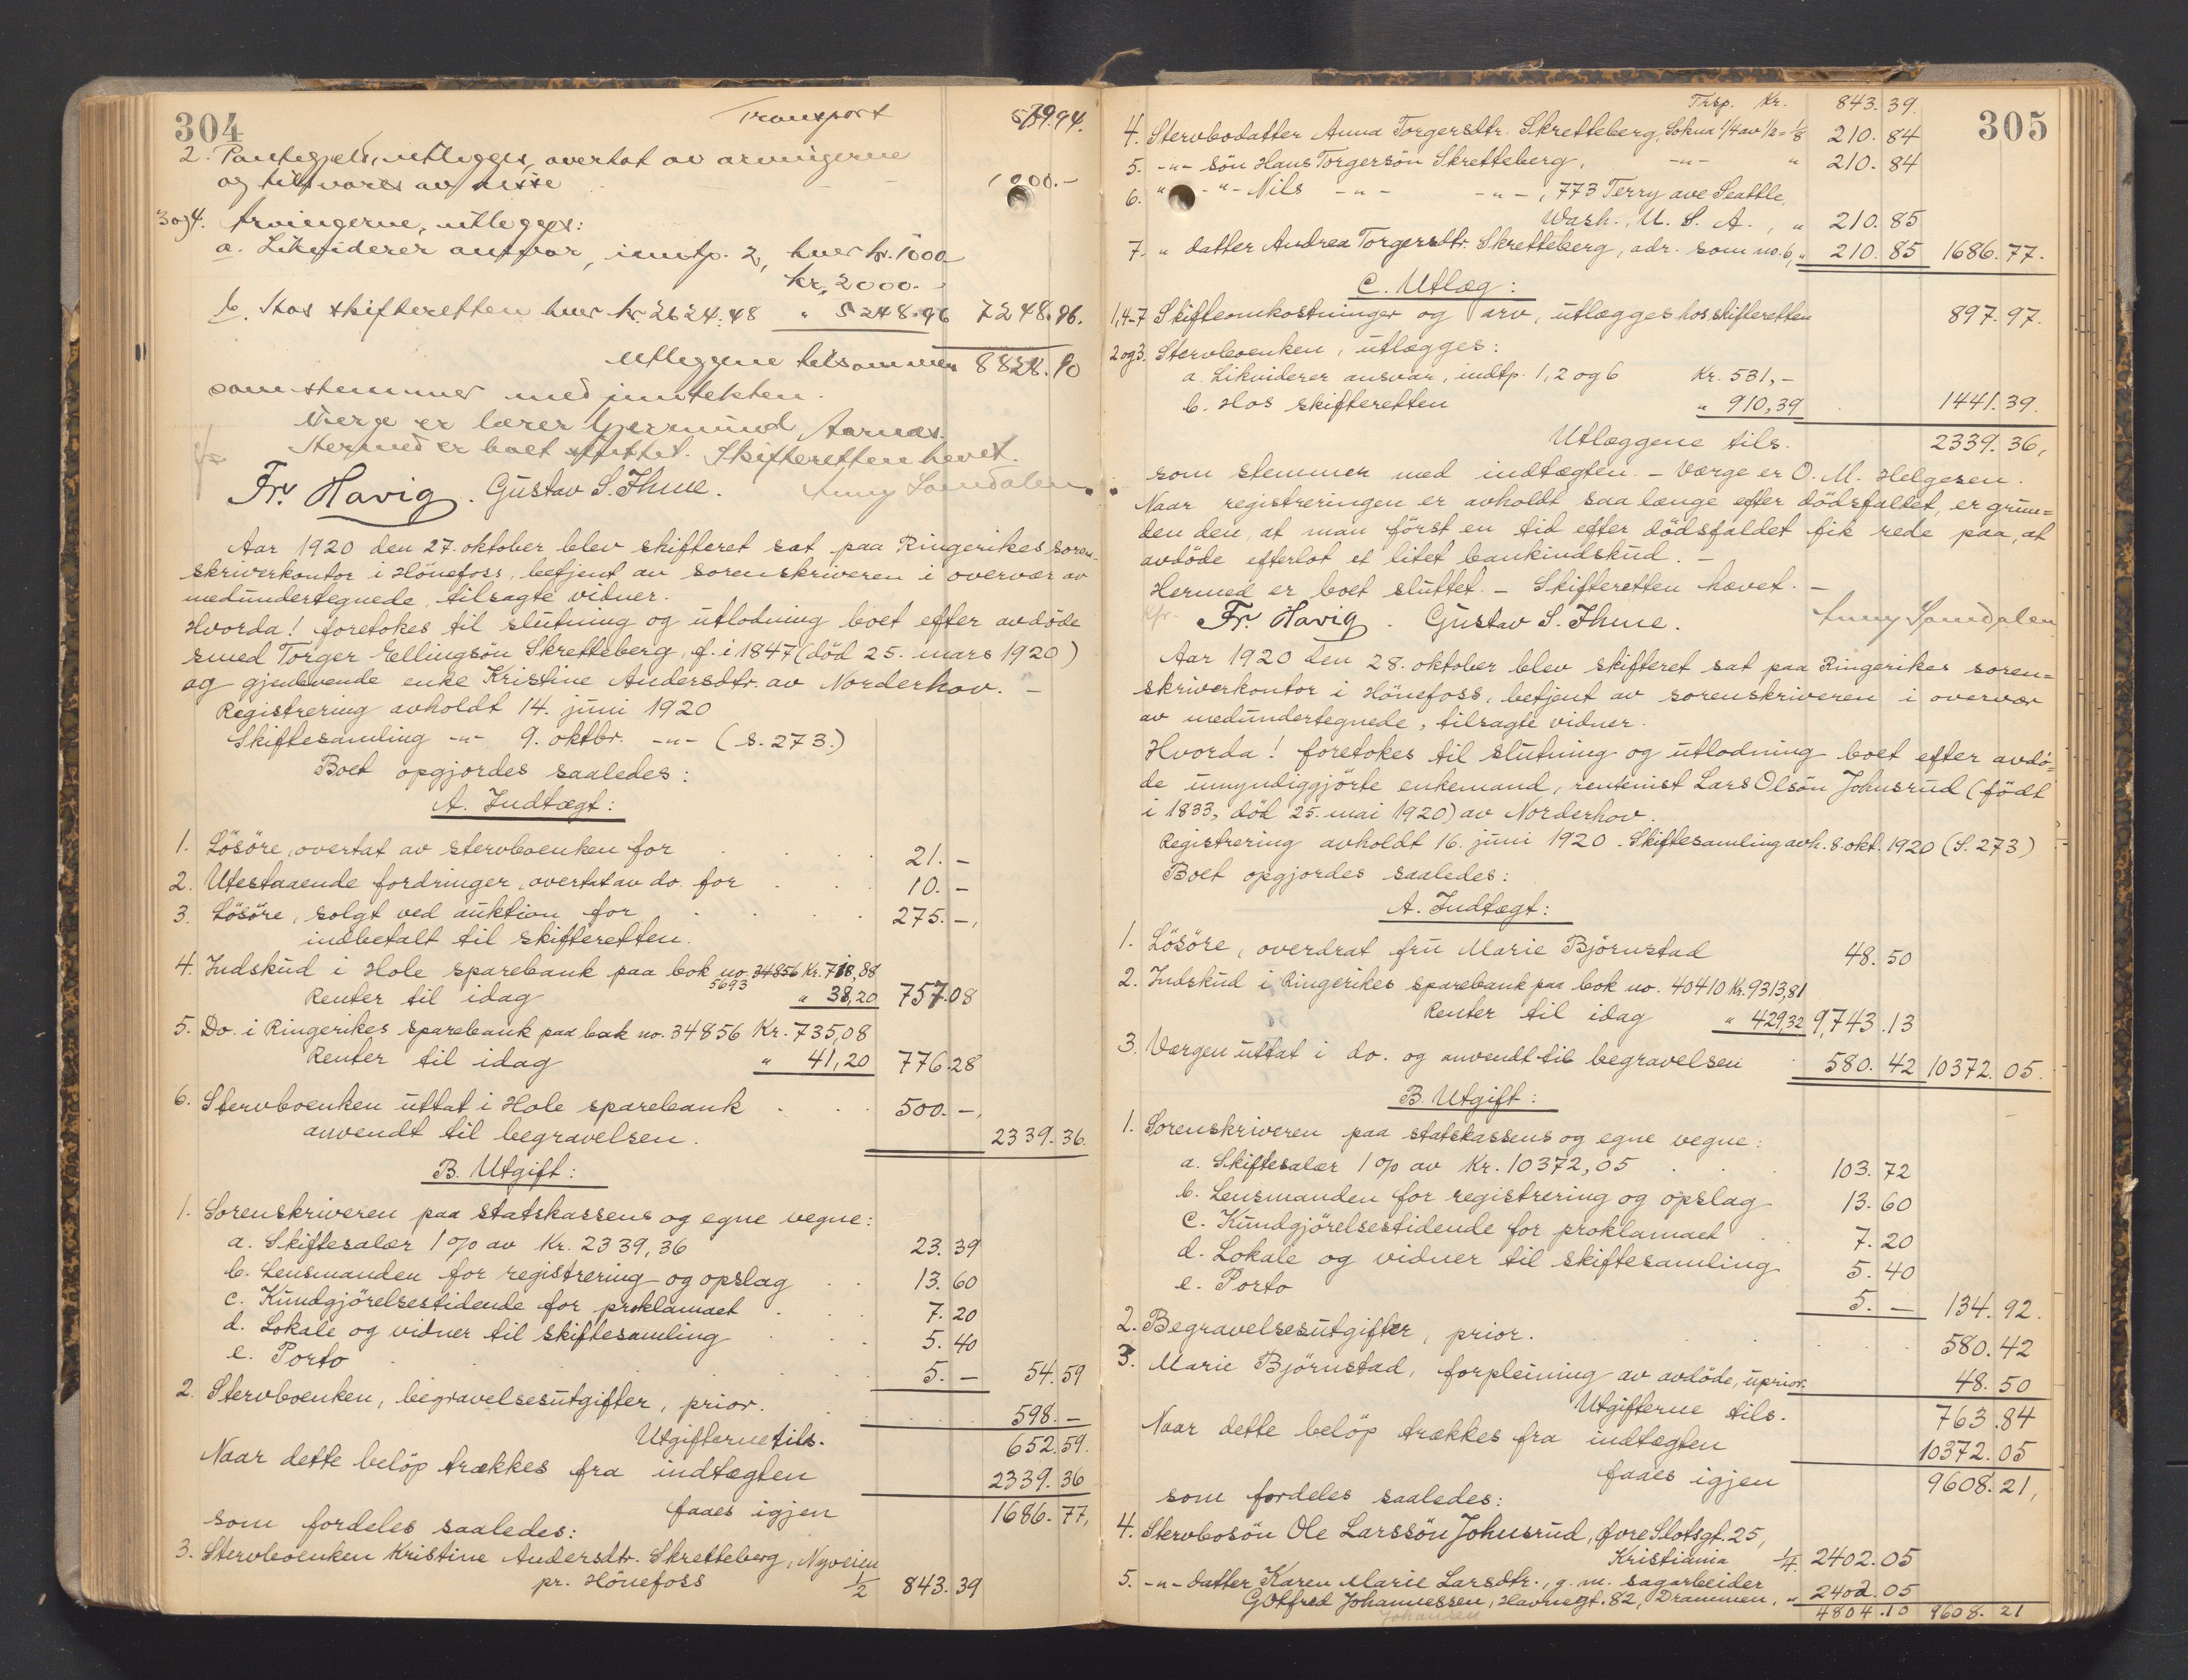 304
Transport 579.94.
2. Pantegjeld, utlegges, overtat av arvingerne
og tilsvares av disse 1000.-
3 og 4. Arvingerne, utlegges:
a. Likviderer ansvar, inntp. 2, hver kr. 1000
kr. 2000.-
b. Hos skifteretten hver kr. 2624.48 " 5248.96 7248.96.
Utleggene tilsammen 8828.90
som stemmer med inntekten.
Verge er lærer Gjermund Aarnæs.
Hermed er boet sluttet. Skifteretten hevet.
Fr. Havig. Gustav S. Ihme. Anny Samdalen.
Aar 1920 den 27. oktober blev skifteret sat paa Ringerikes soren-
skriverkontor i Hönefoss, betjent av sorenskriveren i overvær av
medundertegnede, tilsagte vidner.
Hvorda! foretokes til slutning og utlodning boet efter avdöde
smed Torger Ellingsön Skretteberg, f. i 1847 (död 25. mars 1920)
og gjenlevende enke Kristine Andersdtr. av Norderhov. -
Registrering avholdt 14. juni 1920
Skiftesamling -"- 9. oktbr. -"- (s. 273.)
Boet opgjordes saaledes:
A. Indtægt:
1. Lösöre, overtat av stervboenken for 21. -
2. Utestaaende fordringer, overtat av do. for 10. -
3. Lösöre, solgt ved auktion for 275. -,
indbetalt til skifteretten.
4. Indskud i Hole sparebank paa bok no. 34856 Kr. 718,88
5693
Renter til idag " 38,20 757.08
5. Do. i Ringerikes sparebank paa bok no. 34856 Kr. 735,08
Renter til idag " 41,20 776.28
6. Stervboenken uttat i Hole sparebank 500. -,
anvendt til begravelsen. 2339.36.
B. Utgift:
1. Sorenskriveren paa statskassens og egne vegne:
a. Skiftesalær 1% av Kr. 2339,36 23.39
b. Lensmanden for registrering og opslag 13.60
c. Kundgjörelsestidende for proklamaet 7.20
d. Lokale og vidner til skiftesamling 5.40
e. Porto 5. - 54.59
2. Stervboenken, begravelsesutgifter, prior. 598. -
Utgifterne tils. 652.59.
Naar dette belöp trækkes fra indtægten 2339.36
faaes igjen 1686.77,
som fordeles saaledes:
3. Stervboenken Kristine Andersdtr. Skretteberg, Nyveien
pr. Hönefoss 1/2 843.39
305
Trsp. Kr. 843.39.
4. Stervbodatter Anna Torgersdtr. Skretteberg, Sokna 1/4 av 1/2 = 1/8 210.84
5. -"- sön Hans Torgersön Skretteberg, -"- " 210.84
6. " -"- Nils -"- -"-, 773 Terry ave Seattle,
Wash., U. S. A., " 210.85
7. " datter Andrea Torgersdtr. Skretteberg, adr. som no. 6, " 210.85 1686.77.
C. Utlæg:
1,4-7 Skifteomkostninger og arv, utlægges hos skifteretten 897.97.
2 og 3. Stervboenken, utlægges:
a. Likviderer ansvar, indtp. 1, 2 og 6 Kr. 531,-
b. Hos skifteretten " 910,39 1441.39.
Utlæggene tils. 2339.36,
som stemmer med indtægten. - Værge er O. M. Helgesen.
Naar registreringen er avholdt saa længe efter dödsfaldet, er grun=
den den, at man först en tid efter dödsfaldet fik rede paa, at
avdöde efterlot et litet bankindskud. -
Hermed er boet sluttet. - Skifteretten hævet. -
Kfr. Fr. Havig. Gustav S. Ihme. Anny Samdalen
Aar 1920 den 28. oktober blev skifteret sat paa Ringerikes soren=
skriverkontor i Hönefoss, betjent av sorenskriveren i overvær
av medundertegnede, tilsagte vidner.
Hvorda! foretokes til slutning og utlodning boet efter avdö=
de umyndiggjorte enkemand, rentenist Lars Olsön Johnsrud (födt
i 1833, död 25. mai 1920) av Norderhov.
Registrering avholdt 16. juni 1920. Skiftesamling avh. 8. okt. 1920 (S. 273)
Boet opgjordes saaledes:
A. Indtægt:
1. Lösöre, overdrat fru Marie Björnstad 48.50
2. Indskud i Ringerikes sparebank paa bok no. 40410 Kr. 9313,81
Renter til idag " 429,32 9,743.13
3. Værgen uttat i do. og anvendt til begravelsen 580.42 10372.05.
B. Utgift:
1. Sorenskriveren paa statskassens og egne vegne:
a. Skiftesalær 1% av Kr. 10372,05 103.72
b. Lensmanden for registrering og opslag 13.60
c. Kundgjörelsestidende for proklamaet 7.20
d. Lokale og vidner til skiftesamling 5.40
e. Porto 5. - 134.92.
2. Begravelsesutgifter, prior. 580.42
3. Marie Björnstad, forpleining av avdöde, uprior. 48.50
Utgifterne tils. 763.84
Naar dette belöp trækkes fra indtægten 10372.05
faaes igjen 9608.21,
som fordeles saaledes:
4. Stervbosön Ole Larssön Johnsrud, Övre Slotsgt. 25,
Kristiania 1/4 2402.05
5. -"- datter Karen Marie Larsdtr., g. m. sagarbeider
Gotfred Johannessen, Havnegt. 82, Drammen, " 2402.05
Johansen 4804.10 9608.21